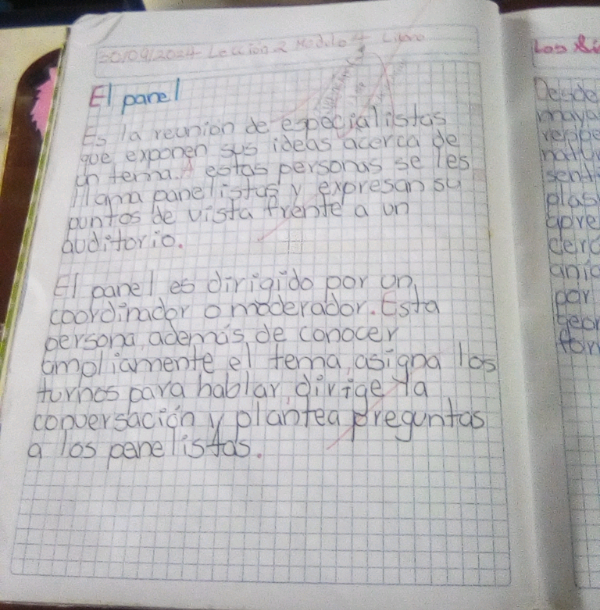 30/09/2024 Lección 2 Módulo 4
El panel
Es la reunión de especialistas
que exponen sus ideas acerca de
un tema. estas personas se les
llama panelistas y expresan su
puntos de vista frente a un
auditorio.
El panel es dirigido por un
coordinador o moderador. Esta
persona, además de conocer
ampliamente el tema, asigna los
turnos para hablar, dirige la
conversación y plantea preguntas
a los panelistas.
Los
Desde